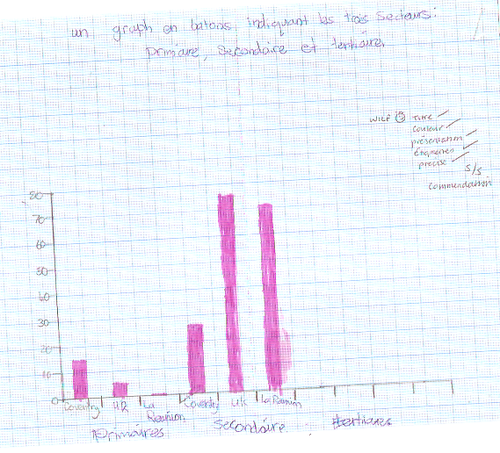 un graph en batons indiquant les trois secteurs:
primaire, secondaire et tertiaire.
titre
couleur
présentation
étiquettes
précise
5/5
commendation
80
70
60
50
40
30
20
10
0
Coventry UK La Reunion Coventry UK La Reunion
Primaires Secondaire : tertiaires